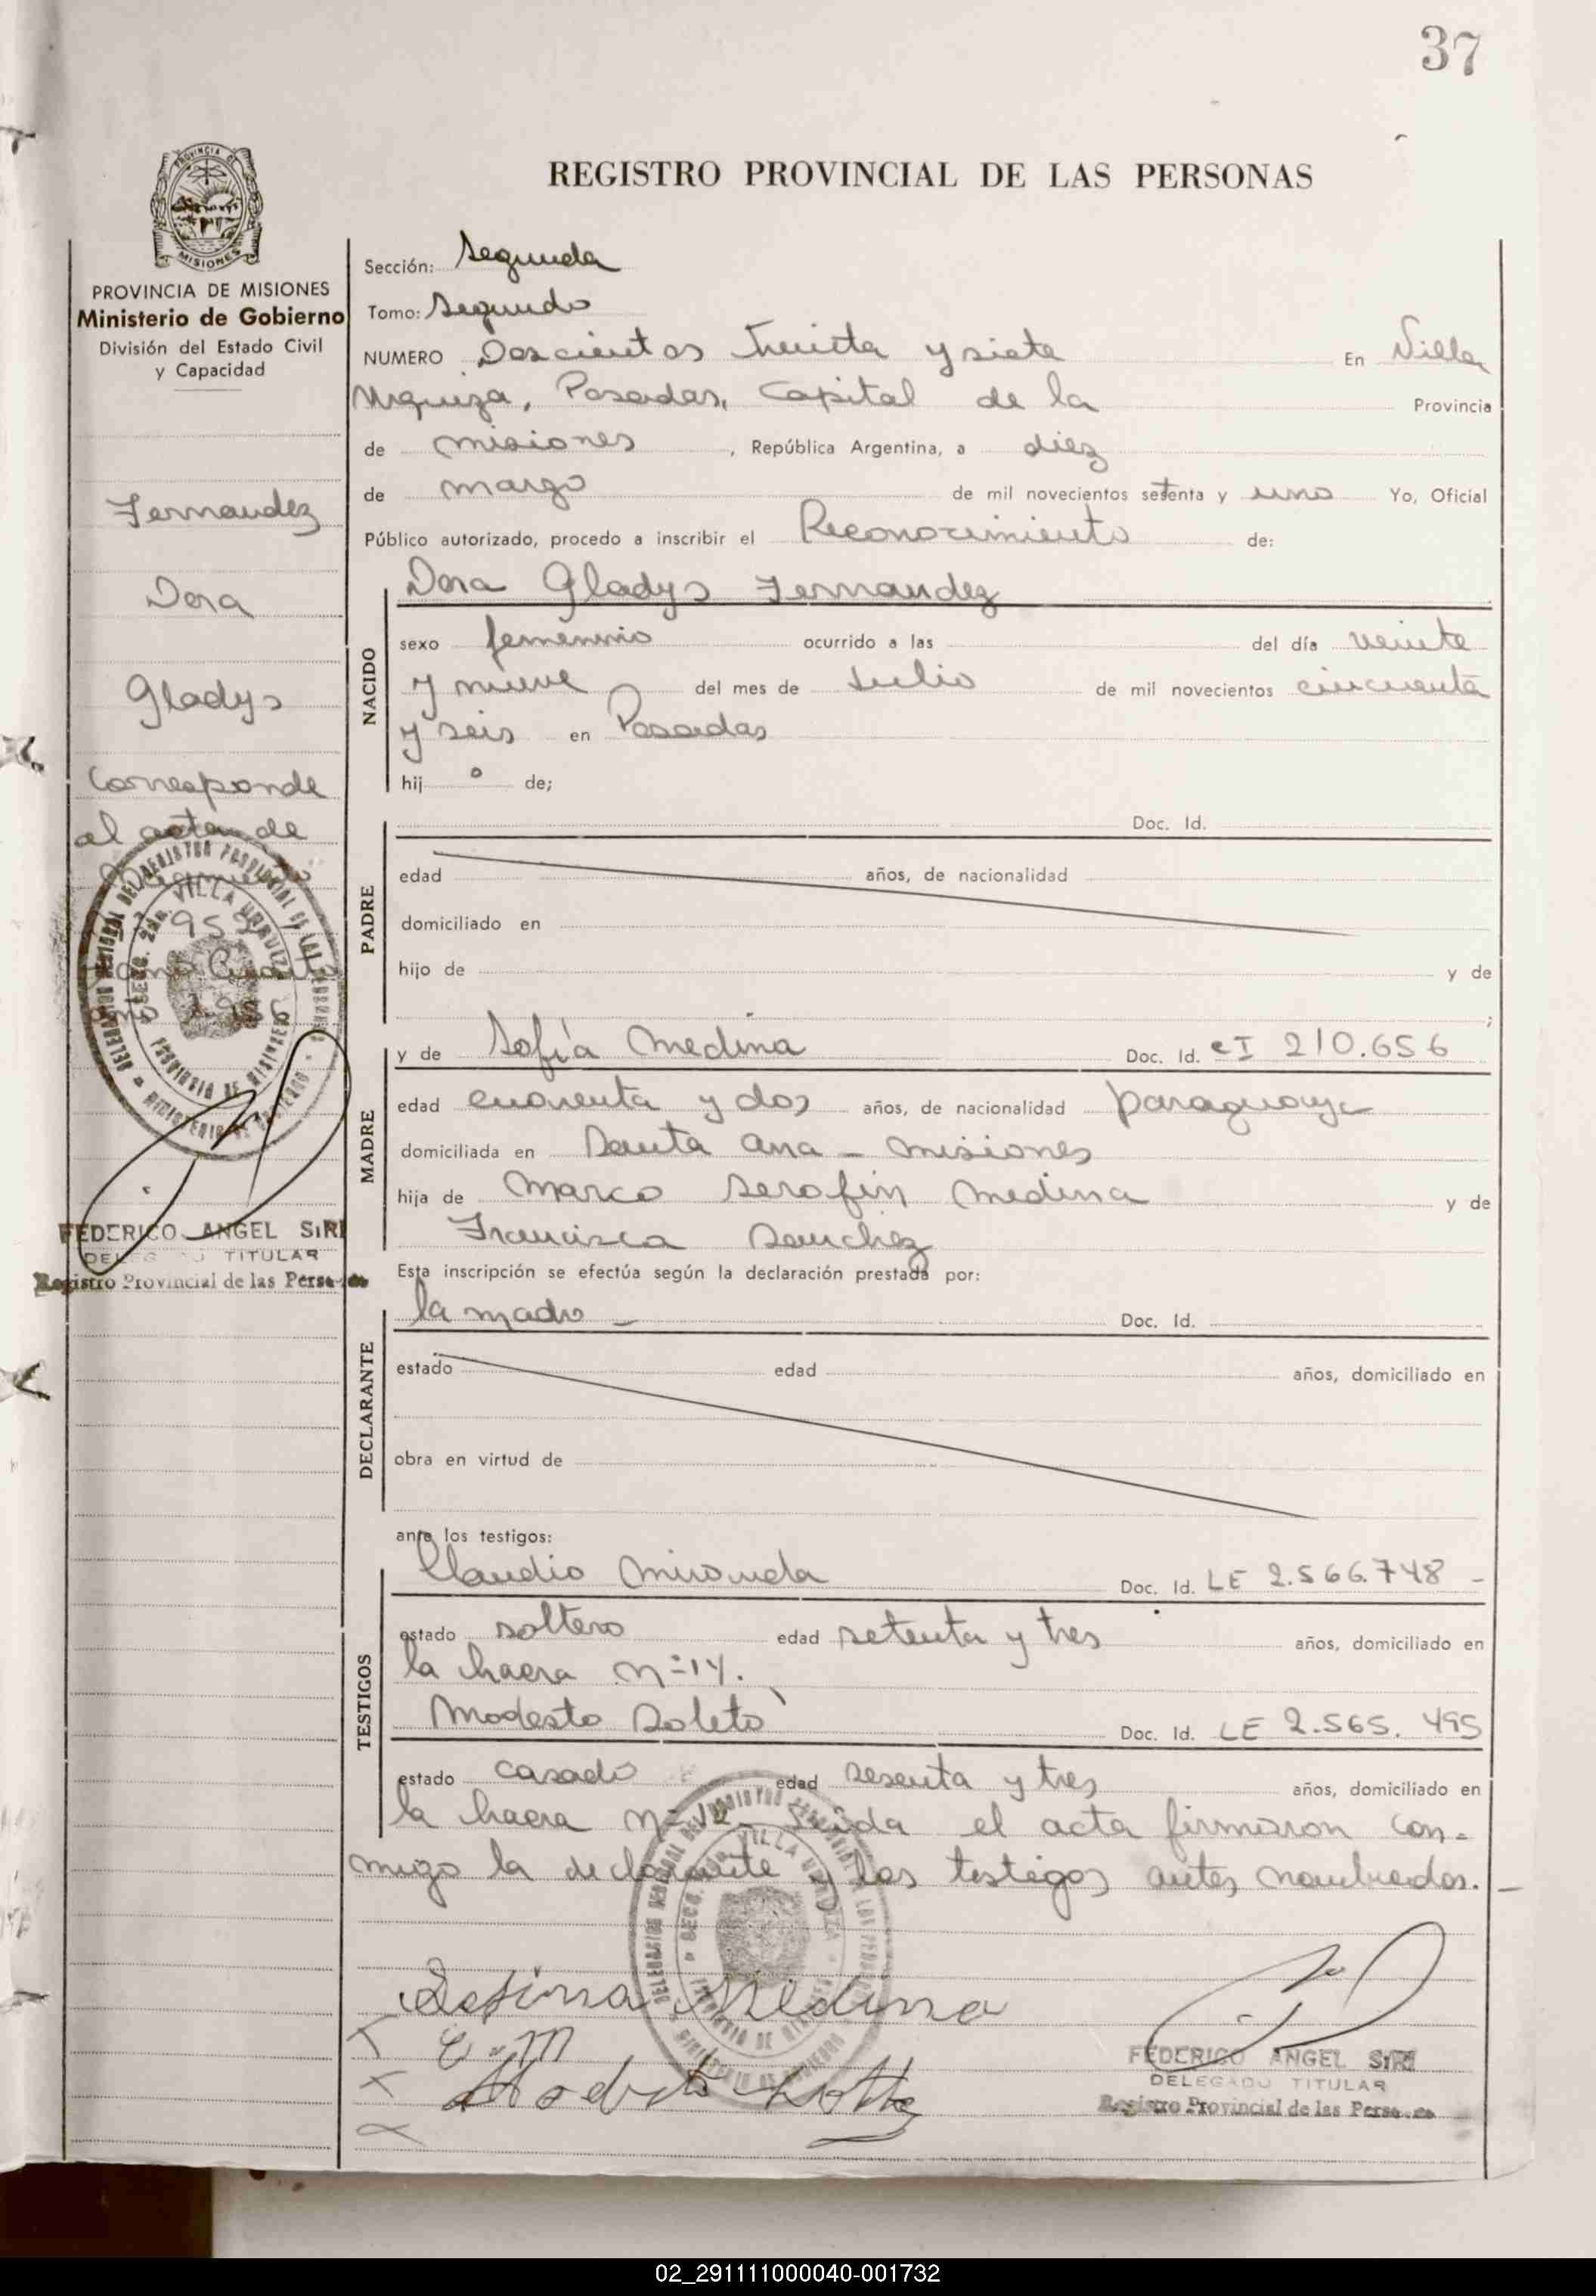 37
REGISTRO PROVINCIAL DE LAS PERSONAS
PROVINCIA DE MISIONES
PROVINCIA DE MISIONES
Ministerio de Gobierno
División del Estado Civil
y Capacidad
Fernandez
Dora
Gladys
Corresponde
al acta de
FEDERICO ANGEL SIRI
TITULAR
Registro Provincial de las
Sección: Segunda
Tomo: Segundo
NUMERO Doscientos treinta y siete En Villa
Urquiza, Posadas, Capital de la Provincia
de misiones, República Argentina, a diez
de marzo de mil novecientos setenta y uno Yo, Oficial
Público autorizado, procedo a inscribir el Reconocimiento de:
Dora Gladys Fernandez
NACIDO
sexo femenino ocurrido a las del día veinte
y nueve del mes de Julio de mil novecientos cincuenta
y seis en Posadas
hij o de;
PADRE
Doc. Id.
edad años, de nacionalidad
domiciliado en
hijo de y de
;
MADRE
y de Sofía Medina Doc. Id. CI 210.656
edad cuarenta y dos años, de nacionalidad paraguaya
domiciliada en Santa Ana - misiones
hija de Marco Serafin Medina y de
Francisca Sanchez
Esta inscripción se efectúa según la declaración prestada por:
DECLARANTE
la madre - Doc. Id.
estado edad años, domiciliado en
obra en virtud de
ante los testigos:
TESTIGOS
Claudio Miranda Doc. Id. LE 2.566.748 -
estado soltero edad setenta y tres años, domiciliado en
la hacra nº 14.
Modesto Soleto Doc. Id. LE 2.565.495
estado casado edad sesenta y tres años, domiciliado en
la hacra nº 12 - Leida el acta firmaron con-
migo la declarante y los testigos antes nombrados. -
Medina
C. M
FEDERICO ANGEL SIRI
DELEGADO TITULAR
Registro Provincial de las
02_291111000040-001732